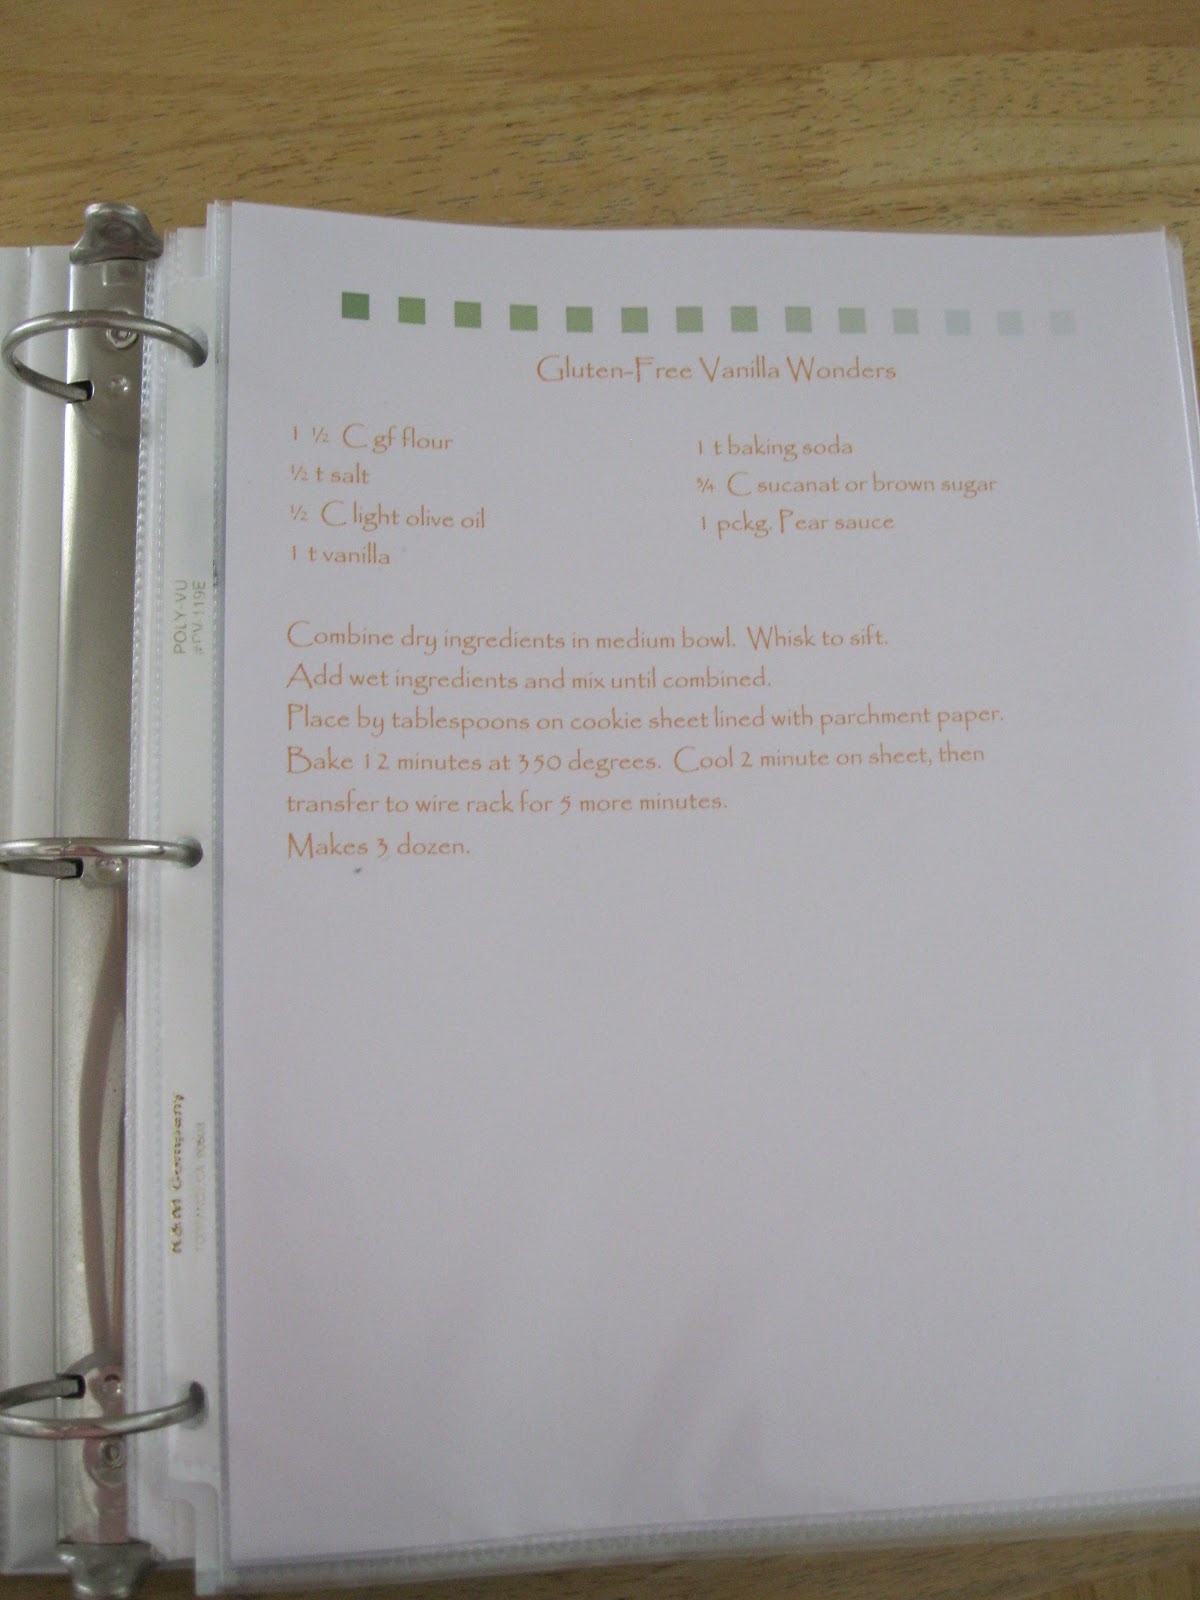 Gluten-Free Vanilla Wonders
1 ½ C gf flour
½ t salt
½ C light olive oil
1 t vanilla
1 t baking soda
¾ C sucanat or brown sugar
1 pckg. Pear sauce
Combine dry ingredients in medium bowl. Whisk to sift.
Add wet ingredients and mix until combined.
Place by tablespoons on cookie sheet lined with parchment paper.
Bake 12 minutes at 350 degrees. Cool 2 minute on sheet, then
transfer to wire rack for 5 more minutes.
Makes 3 dozen.
POLY-VU
#PV-119E
K&M Company